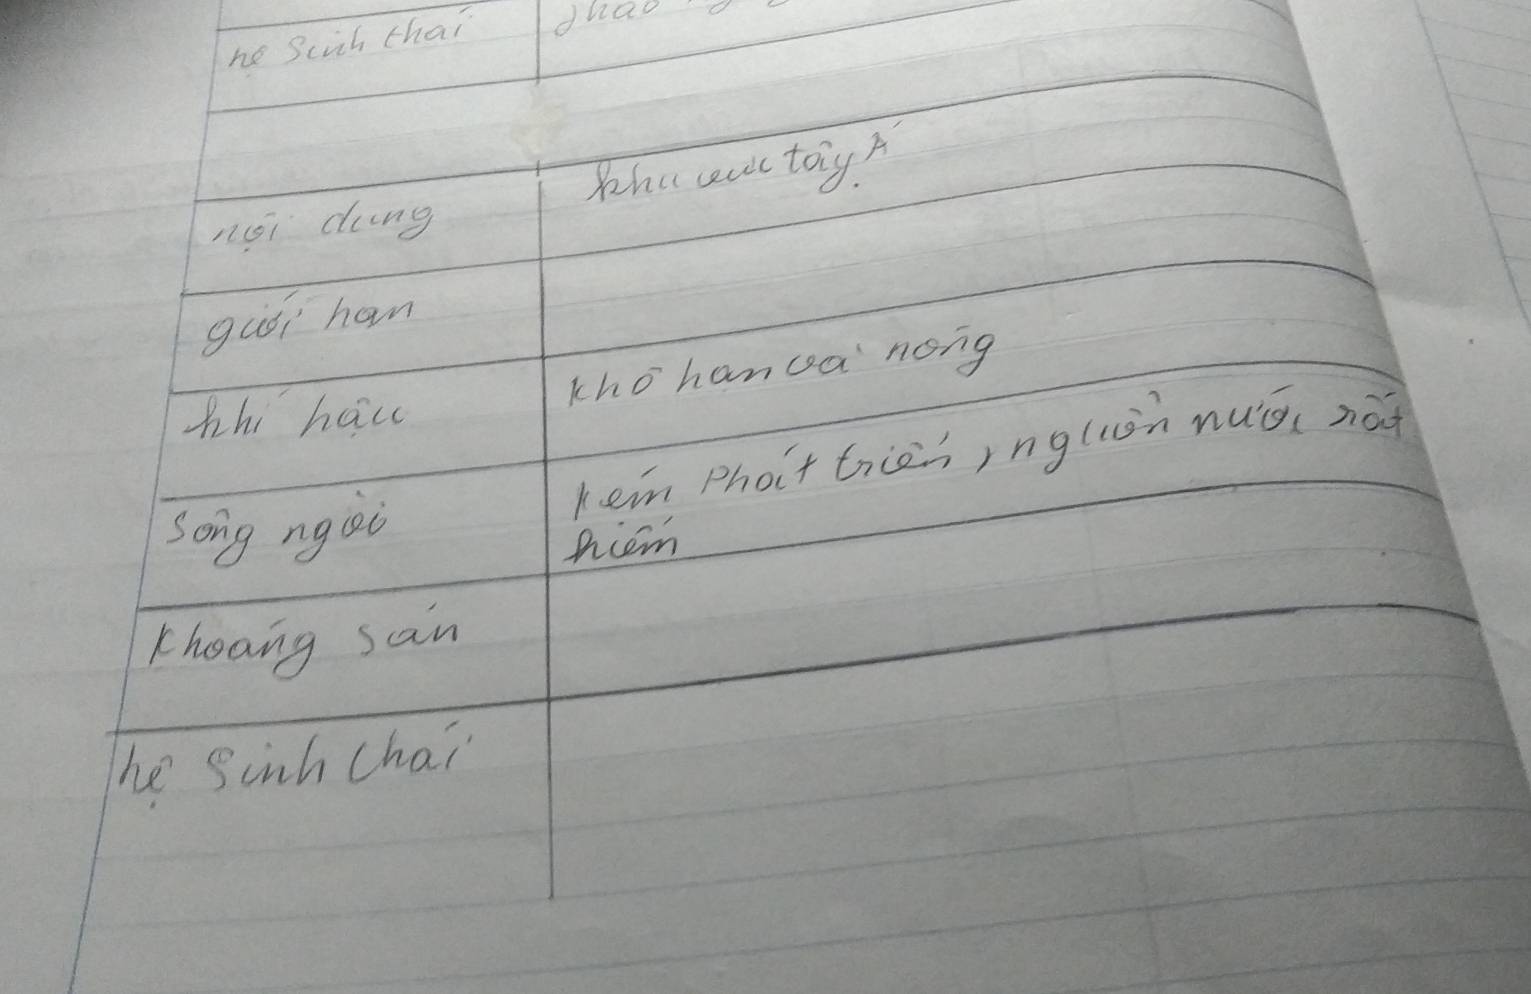 hệ sinh thái
nội dung
khu vực tây Á
giới hạn
khí hậu
khô hạn và nóng
sông ngòi
kém phát triển, nguồn nước rất
hiếm
khoáng sản
hệ sinh thái